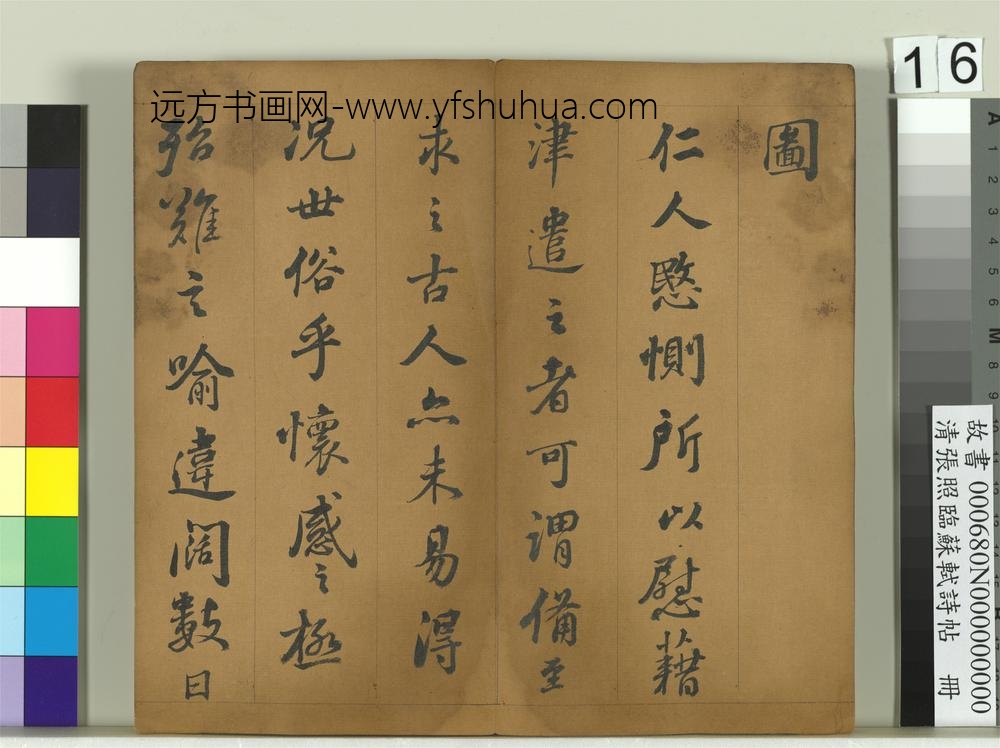 远方书画网-www.yfshuhua.com
圖
仁人愍惻所以慰藉
津遣之者可謂備至
求之古人亦未易得
況世俗乎懷感之極
殆難之喻違闊數日
16
故書 000680N000000000
清張照臨蘇軾詩帖 冊
A 1 2 3 4 5 6 M 8 9